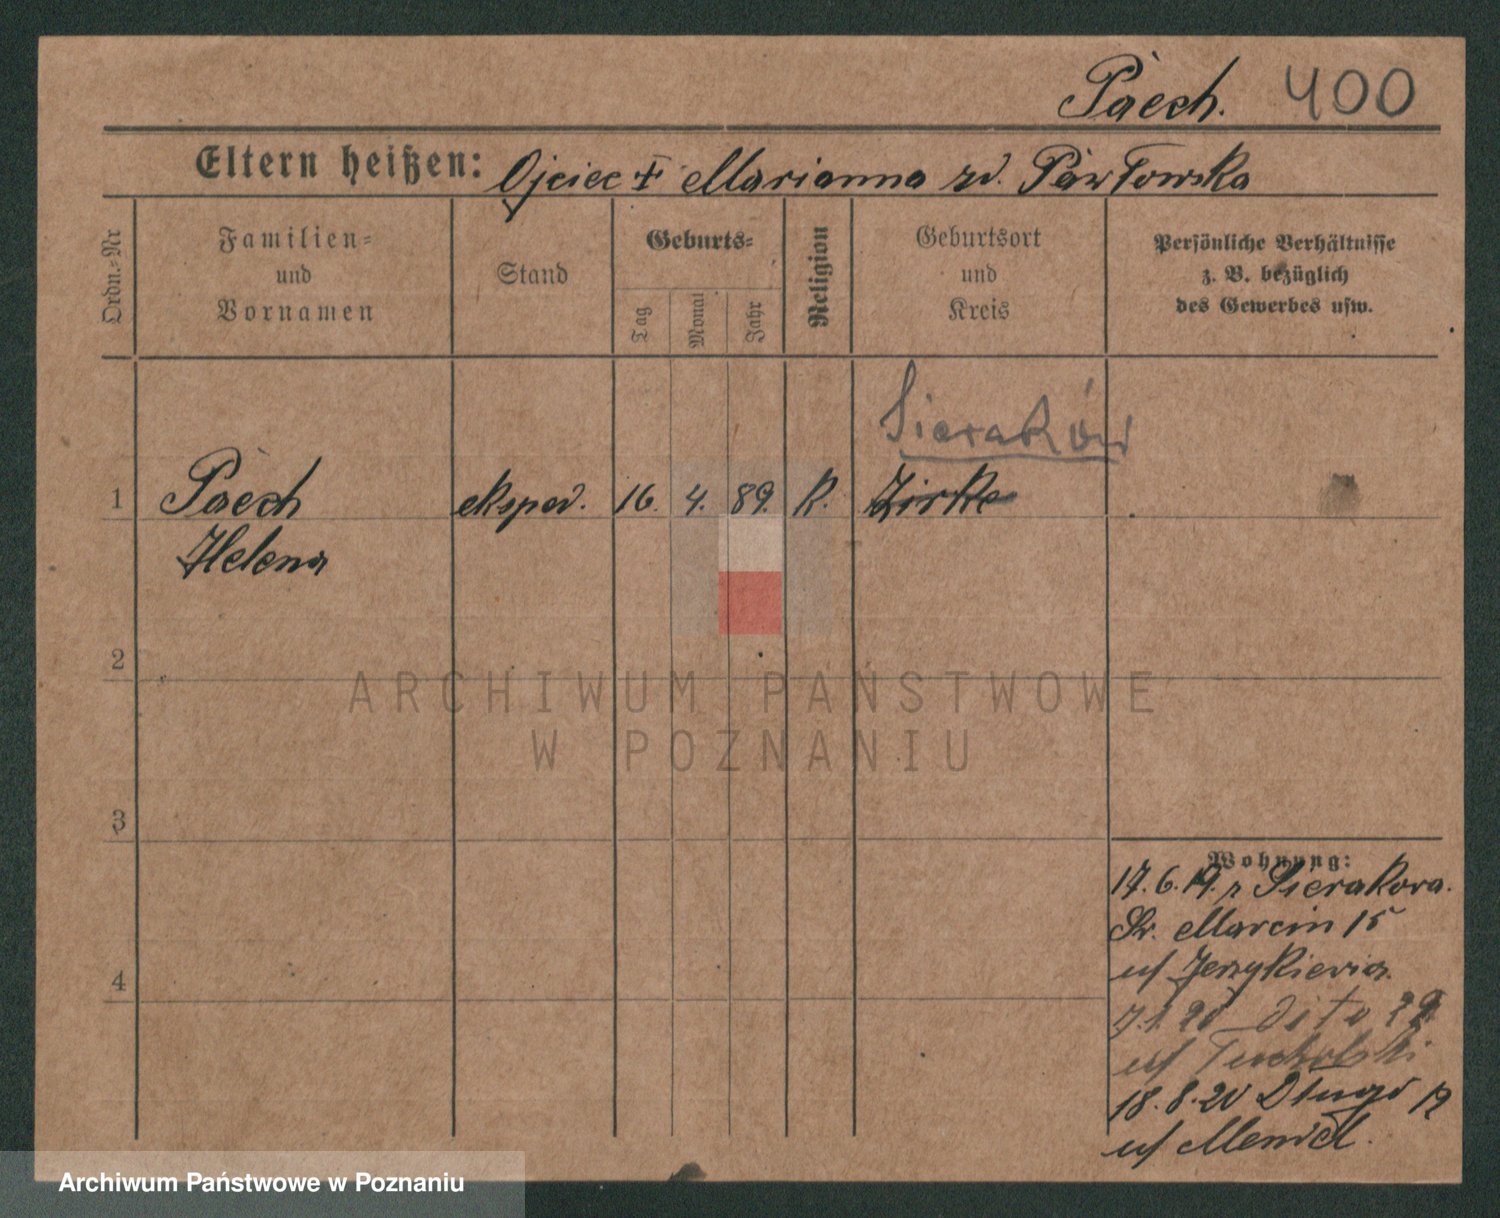 Paech. 400
Eltern heißen: Ojciec † Marianna zd. Pawłowska
Ordn.-Nr
Familien-
und
Vornamen
Stand
Geburts-
Tag
Monat
Jahr
Religion
Geburtsort
und
Kreis
Persönliche Verhältnisse
z. B. bezüglich
des Gewerbes usw.
Sieraków
1 Paech eksped. 16. 4. 89. K. Zirke
Helena
2
3
4
Wohnung:
17.6.19. z Sierakowa.
Św. Marcin 15
Dito
18.8.20 Długa 12
ARCHIWUM PAŃSTWOWE
W POZNANIU
Archiwum Państwowe w Poznaniu